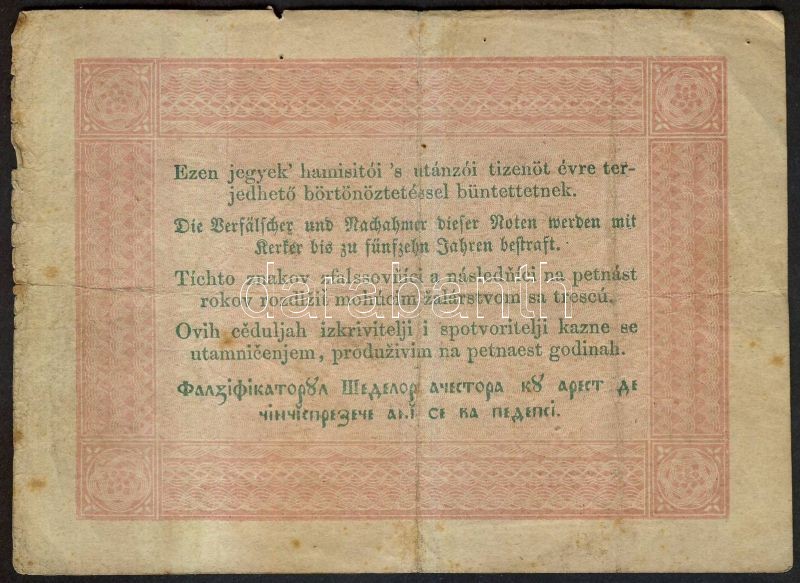 Ezen jegyek' hamisitói 's utánzói tizenöt évre ter-
jedhető börtönöztetéssel büntettetnek.
Die Verfälscher und Nachahmer dieser Noten werden mit
Kerker bis zu fünfzehn Jahren bestraft.
Tíchto znakov sfalssovňíci a následňíci na petnást
rokov rozdlžiť mohúcim žalárstvom sa trescú.
darabanth
Ovih cěduljah izkrivitelji i spotvoritelji kazne se
utamničenjem, produživim na petnaest godinah.
Фалзіфікаторꙋл Шеделор ачестора кꙋ арест де
чінчіспрезече анĭ се ва педепсі.